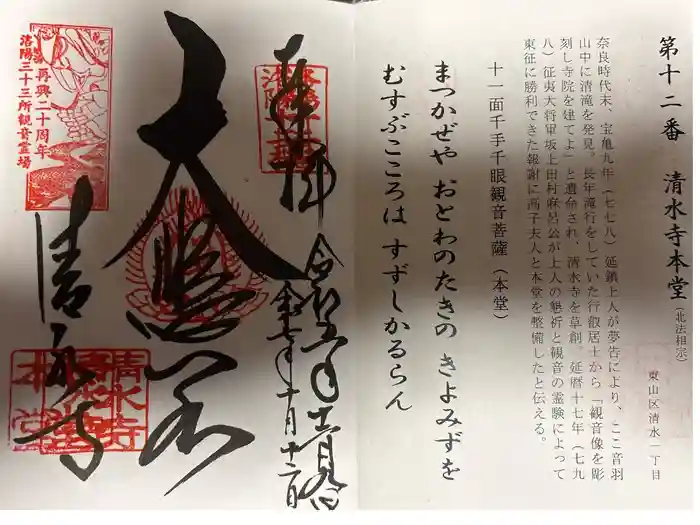 第十二番　清水寺本堂（北法相宗）
東山区清水一丁目
奈良時代末、宝亀九年（七七八）延鎮上人が夢告により、ここ音羽
山中に清滝を発見。長年滝行をしていた行叡居士から「観音像を彫
刻し寺院を建てよ」と遺命され、清水寺を草創。延暦十七年（七九
八）征夷大将軍坂上田村麻呂公が上人の懇祈と観音の霊験によって
東征に勝利できた報謝に高子夫人と本堂を整備したと伝える。
十一面千手千眼観音菩薩（本堂）
まつかぜや おとわのたきの きよみずを
むすぶこころは すずしかるらん
奉拝
大悲閣
清水寺
再興二十周年
洛陽三十三所観音霊場